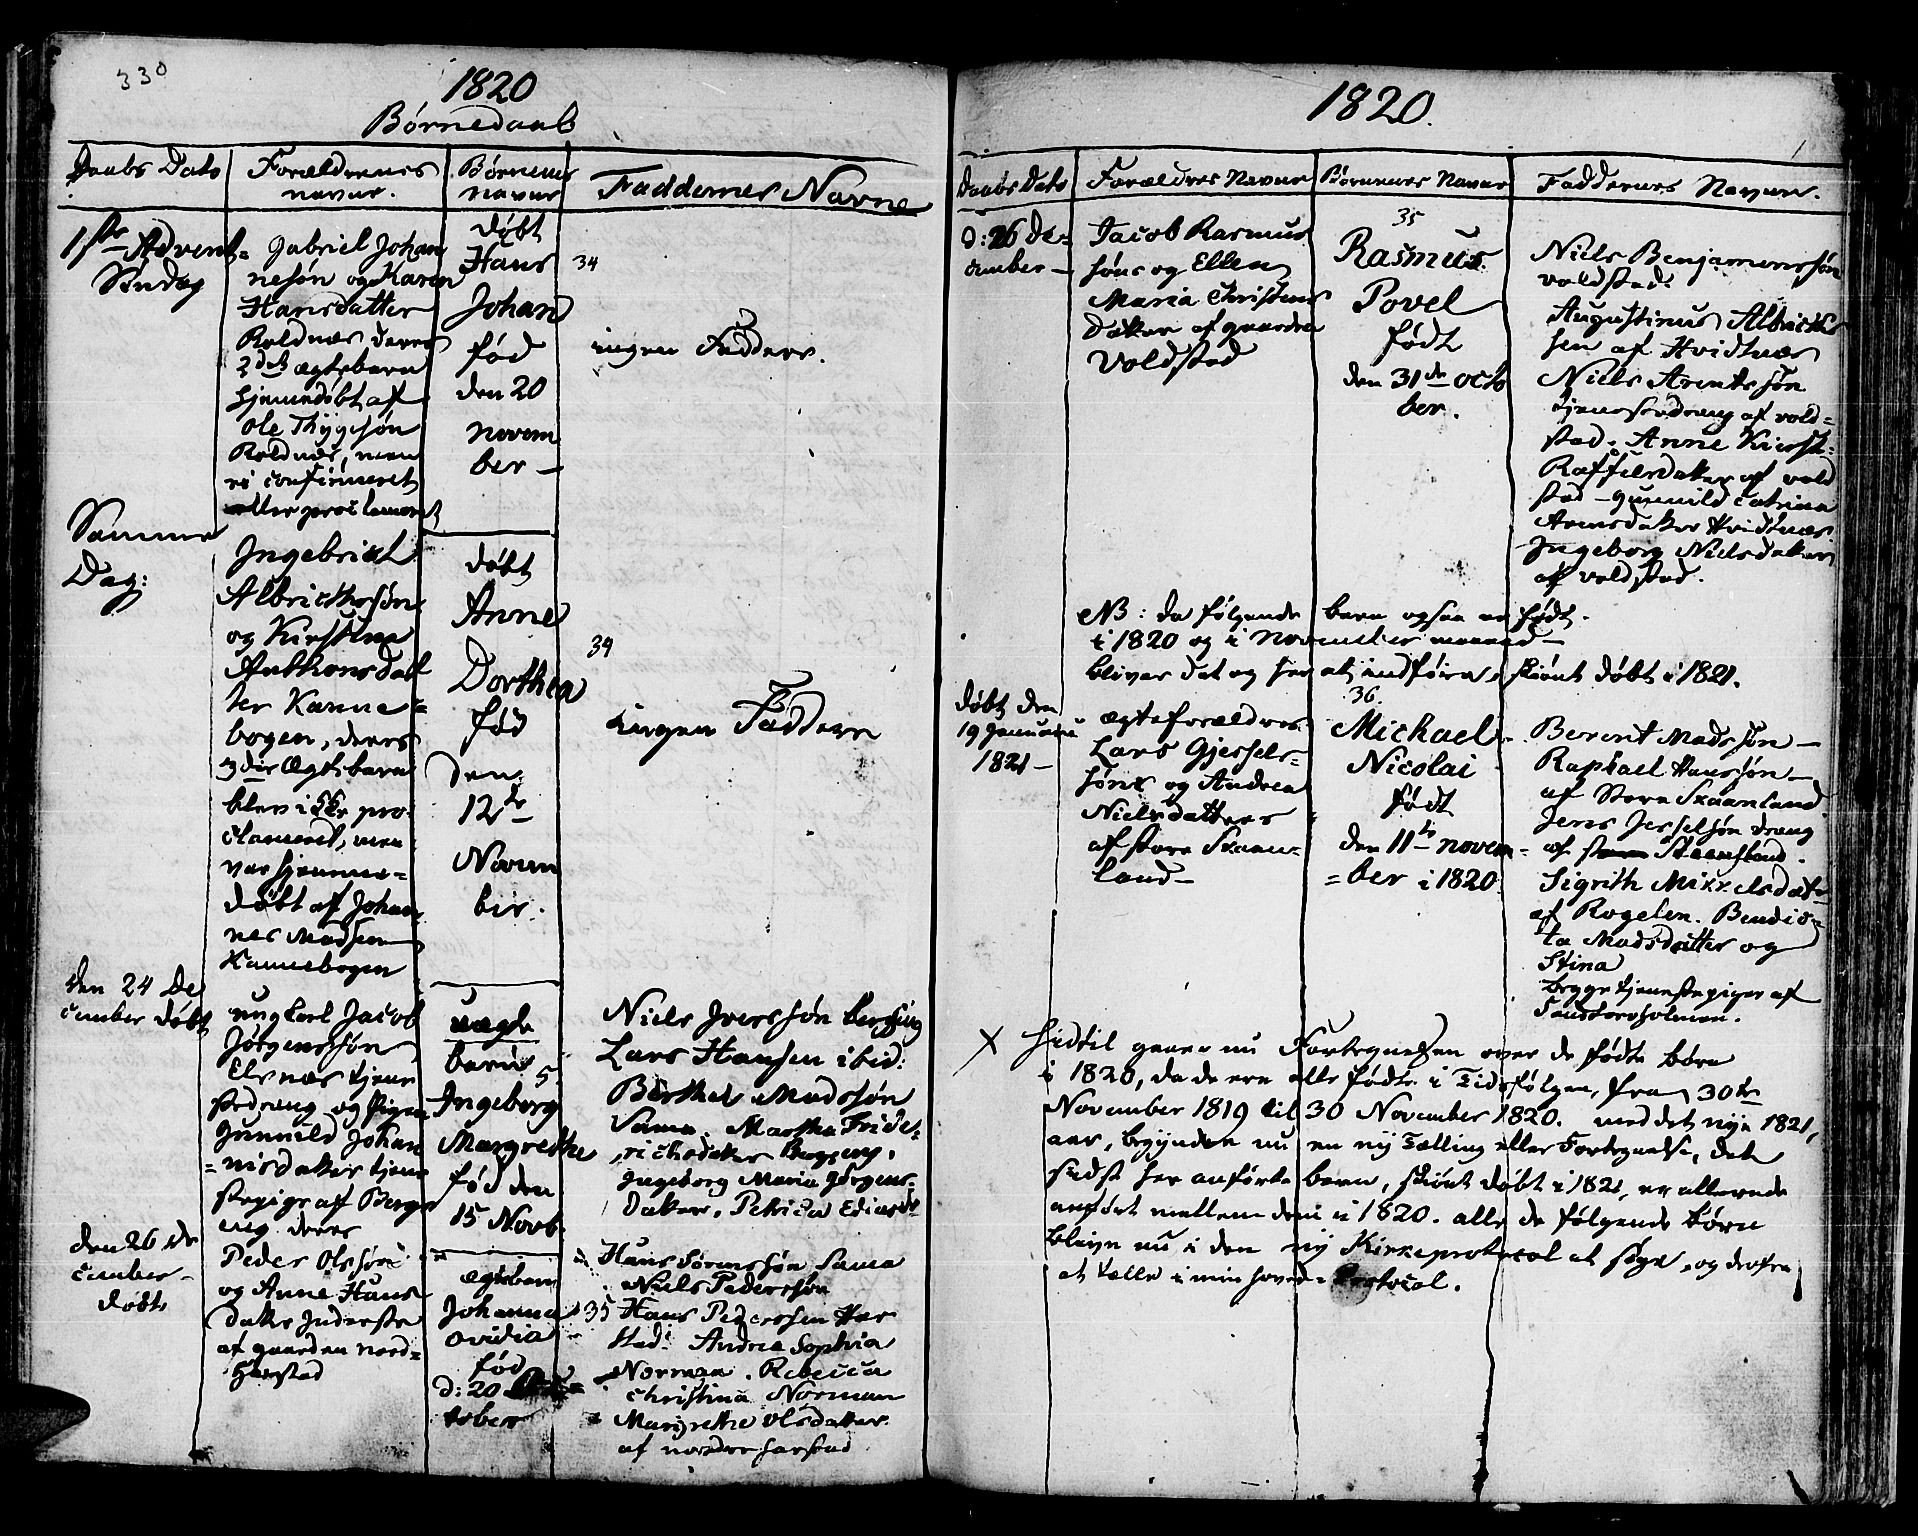 330
1820
Børnedaab
Daabs Dato
Forældrenes
navne.
Børnenes
navne
Faddernes Navne
1ste Advent=
Søndag
Gabriel Johan
nesøn og Karen
Hansdatter
Roldnæs deres
2det ægtebarn
hjemmedøbt af
Ole Thygesøn
Roldnæs, men
ei confirmeret
eller proclameret
døbt
Hans
Johan
fød
den 20
novem
ber –
34
ingen Faddere.
Samme
Dag:
Ingebrict
Albrictssøn
og Kirstina
Anthonsdat
ter Kanne=
bogen, deres
3die Ægtebarn
blev i Kke pro
clameret, men
var hjemme=
døbt af Johan
nes Madsen
Kannebogen
døbt
Anne
Dorthea
fød
den
12te
Novem
ber.
34
ingen Faddere
den 24 De
cember døbt
ungkarl Jacob
Jørgenssøn
Elsnæs tjene
stedreng og Pigen
Gunnild Johan
=nisdatter tjene
stepige af Bergs
eng deres
uægte
barn
5
Ingeborg
Margrethe
fød den
15 Novb.
Niels Iverssøn Bergseng
Lars Hansen ibid:
Berthel Madssøn
Sama. Martha Fride=
richsdatter Bergseng.
Ingeborg Maria Jørgens=
datter. Petrica Ediasdr
den 26 de
cember –
døbt
Peder Olssøn
og Anne Hans
datter Inderste
af gaarden nord=
Harstad
ægtebarn
Johanna
Ovidia
fød
d: 20
tober
35
Hans Sørenssøn Sama
Niels Pederssøn
Hans Pederssen Har
stad: Andrea Sophia
Norman. Rebecca
Christina Norman
Margrethe Olsdatter
af nordre Harstad
1820.
Daabs Dato
Forældres Navne
Børnenes Navne
Faddernes Navne.
d: 26 De=
cember –
Jacob Rasmus
søns og Ellen
Maria Christens
datter af gaarden
Voldstad
35
Rasmus
Povel
født
den 31de octo
ber.
Niels Benjamenssøn
voldstad
Augustinus Albricts
sen af Hvidtnæs
Niels Arentssøn
tjenestedreng af vold=
stad. Anne Kirst:
Raffelsdatter af vold
stad – Gunnild Catrina
Arensdatter Hvidtnæs.
Ingeborg Nielsdatter
af voldstad.
NB: da følgende barn ogsaa er født
i 1820 og i November maaned –
bliver det og her at indføre, skiønt døbt i 1821.
døbt den
19 Januarii
1821 –
ægteforældres
Lars Gjessels=
søns og Andrea
Nielsdatters
af store Skaan=
land –
36.
Michael
Nicolai
født
den 11te novem=
=ber i 1820
Berent Madssøn –
Raphael Hanssøn –
af Store Skaanland
Jens Jesselsøn dreng
af Steensland.
Sigrith Mikkelsdatr
af Rogelen. Bendic=
ta Madsdatter og
Stina
begge tjenestepiger af
Sandtorvholmen.
X Hidtil gaaer nu Fortegnelsen over de fødte børn
i 1820, da de ere alle fødte i Tidsfølgen, fra 30te
November 1819 til 30 November 1820. med det nye 1821,
aar, begynder nu en ny Tælling eller Fortegnelse, det
sidst her anførte barn, skiønt døbt i 1821, er allerede
anført mellem dem i 1820. alle de følgende børn
bleve nu i den ny Kirkeprotocol at søge, og derfra
at tælle i min hoved=Protocol.